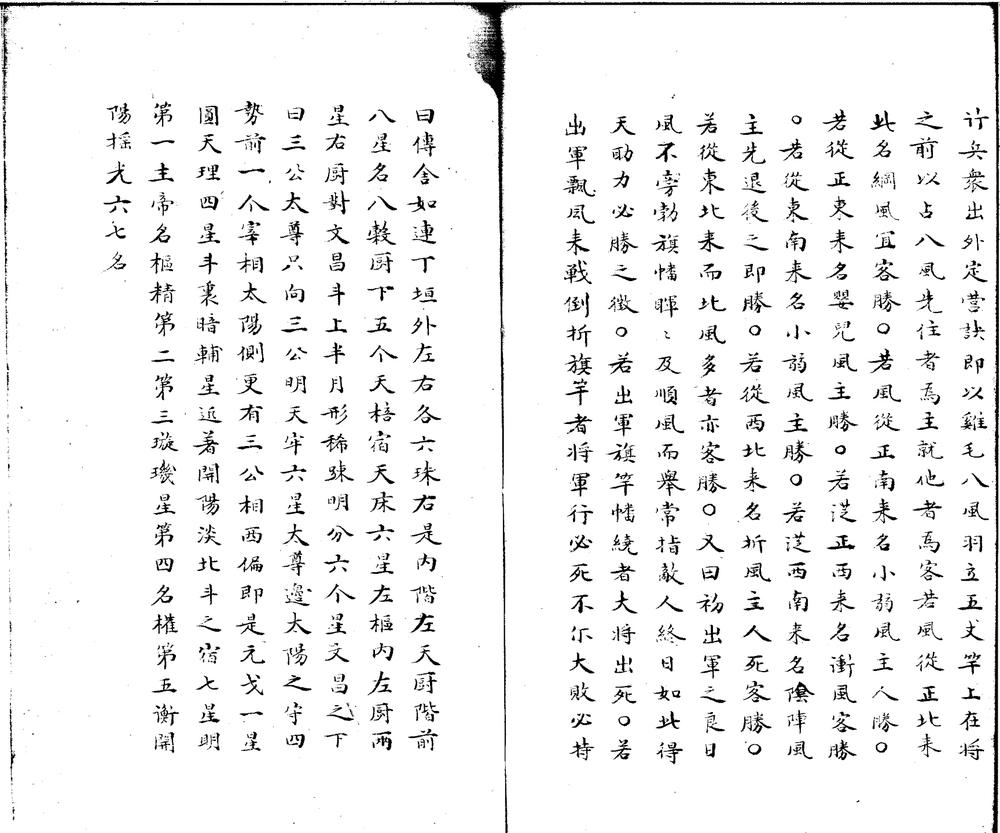 行兵衆出外定營訣即以雞毛八風羽立五丈竿上在将
之前以占八風先住者為主就他者為客若風從正北来
此名綱風宜客勝〇若風從正南来名小弱風主人勝〇
若從正東来名嬰兒風主勝〇若從正西来名衝風客勝
〇若從東南来名小弱風主勝〇若從西南来名陰陣風
主先退後之即勝〇若從西北来名折風主人死客勝〇
若從東北来而北風多者亦客勝〇又曰初出軍之良日
風不旁勃旗幡暉〻及順風而舉常指敵人終日如此得
天助力必勝之徴〇若出軍旗竿幡繞者大将出死〇若
出軍飄風来戦倒折旗竿者将軍行必死不尓大敗必持
曰傳舎如連丁垣外左右各六珠右是内階左天厨階前
八星名八穀厨下五个天棓宿天床六星左樞内左厨兩
星右厨對文昌斗上半月形稀踈明分六个星文昌之下
曰三公太尊只向三公明天牢六星太尊邊太陽之守四
勢前一个宰相太陽側更有三公相西偏即是元戈一星
圓天理四星斗裏暗輔星近著開陽淡北斗之宿七星明
第一主帝名樞精第二第三璇璣星第四名權第五衡開
陽揺光六七名